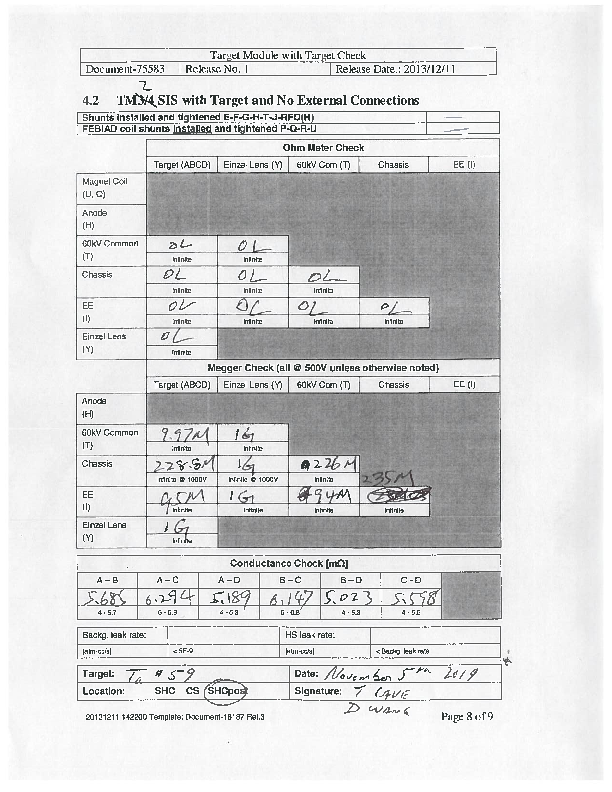 Target Module with Target Check
Document-75583 Release No. 1 Release Date.: 2013/12/11
2
4.2 TM3/4 SIS with Target and No External Connections
Shunts installed and tightened E-F-G-H-T-J-RFD(H) —
FEBIAD coil shunts installed and tightened P-Q-R-U —
Ohm Meter Check
Target (ABCD) Einzel Lens (Y) 60kV Com (T) Chassis EE (I)
Magnet Coil
(U, C)
Anode
(H)
60kV Common OL OL
(T) Infinite Infinite
Chassis OL OL OL
Infinite Infinite Infinite
EE OL OL OL OL
(I) Infinite Infinite Infinite Infinite
Einzel Lens OL
(Y) Infinite
Megger Check (all @ 500V unless otherwise noted)
Target (ABCD) Einzel Lens (Y) 60kV Com (T) Chassis EE (I)
Anode
(H)
60kV Common 9.97M 1G
(T) Infinite Infinite
Chassis 228.8M 1G 226M
Infinite @ 1000V Infinite @ 1000V Infinite 235M
EE 95M 1G 94M
(I) Infinite Infinite Infinite Infinite
Einzel Lens 1G
(Y) Infinite
Conductance Check [mΩ]
A – B A – C A – D B – C B – D C – D
5.685 6.294 5.189 6.147 5.023 5.598
4 - 5.7 6 - 6.9 4 - 5.8 6 - 6.8 4 - 5.8 4 - 5.6
Backg. leak rate: HS leak rate:
[atm-cc/s] <5E-9 [atm-cc/s] < Backg. leak rate
Target: Ta # 59 Date: November 5th 2019
Location: SHC CS SHCpost Signature: T CAVE
D WANG
20131211 142200 Template: Document-18187 Rel.3 Page 8 of 9